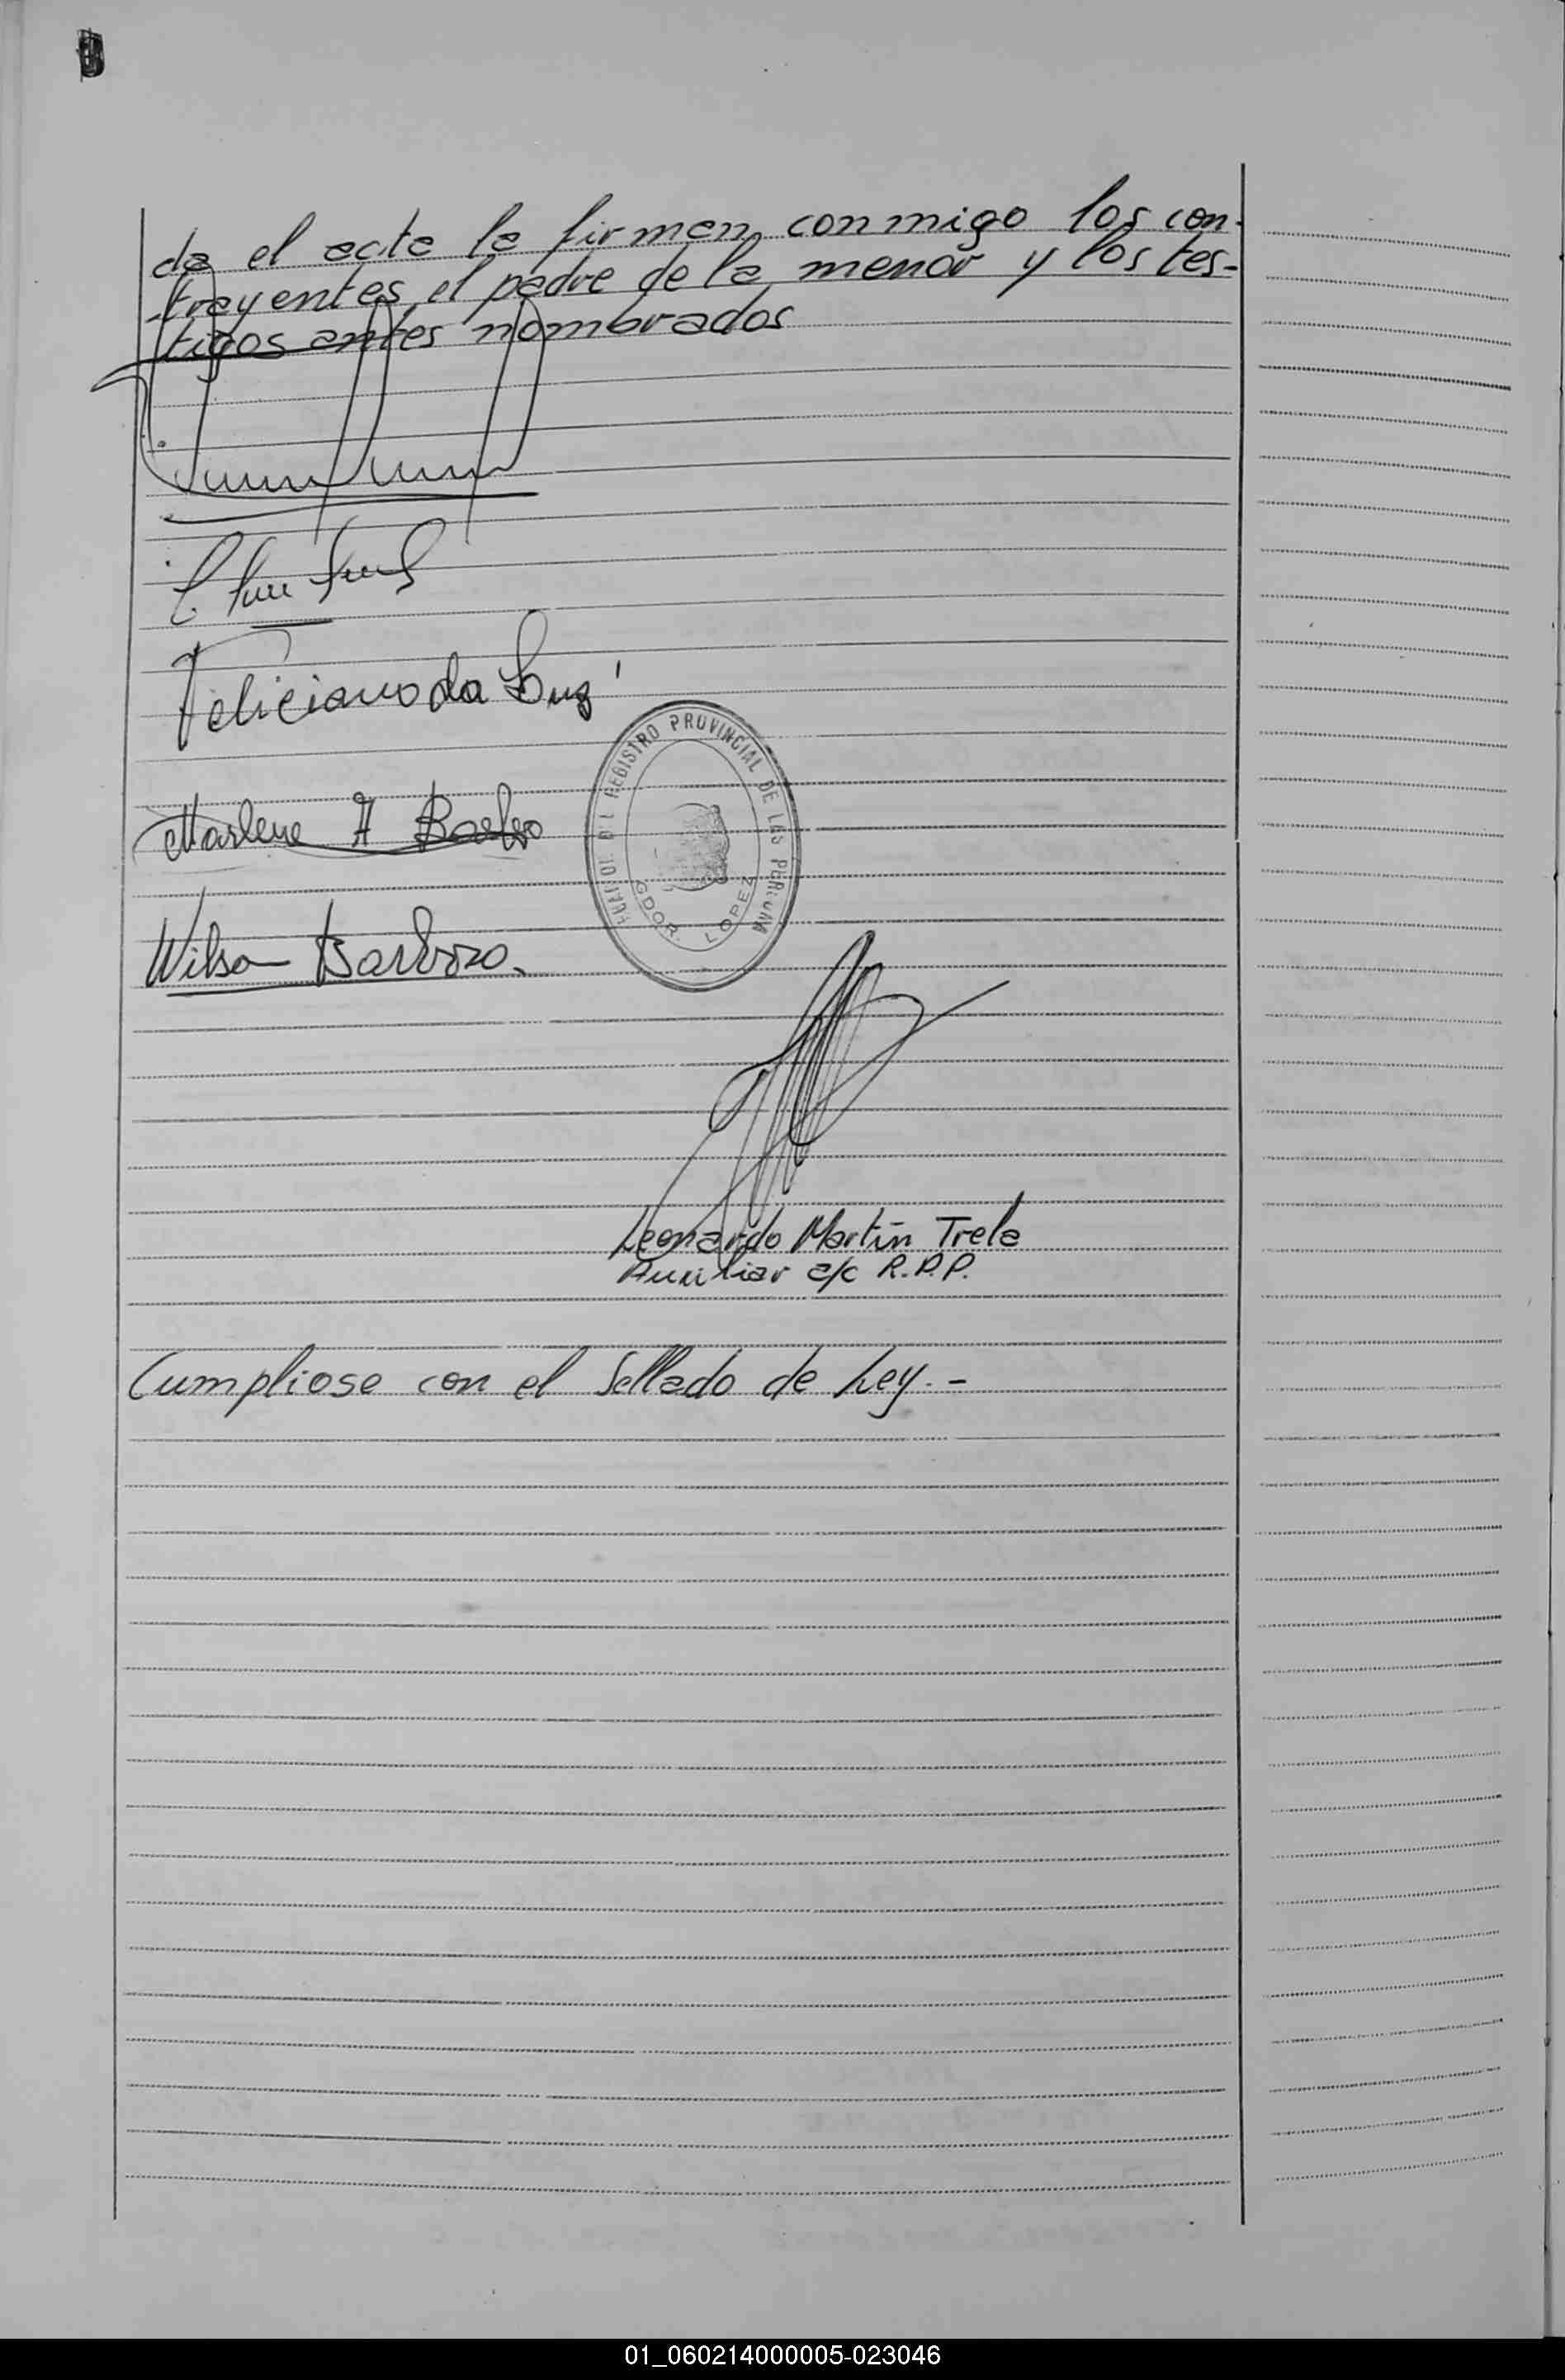 da el acta la firman conmigo los con-
trayentes, el padre de la menor y los tes-
tigos antes nombrados
Feliciano da Luz
Marlene A Barbozo
Wilson Barbozo.
REGISTRO PROVINCIAL DE LAS PERSONAS
GDOR. LOPEZ
Leonardo Martín Trela
Auxiliar a/c R.P.P.
Cumpliose con el Sellado de Ley.-
01_060214000005-023046